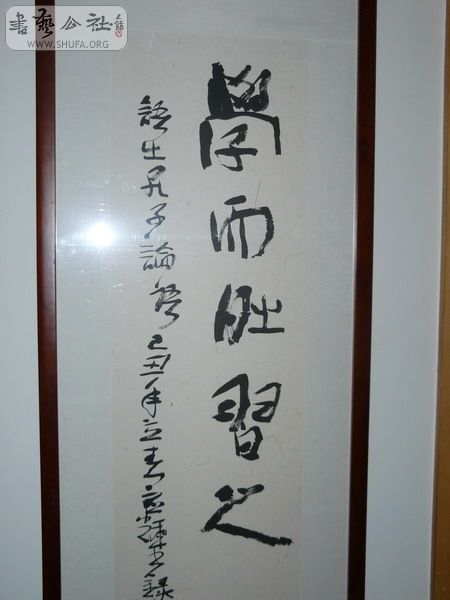 書藝公社
WWW.SHUFA.ORG
學而時習之
語出孔子論語己丑年立春
錄